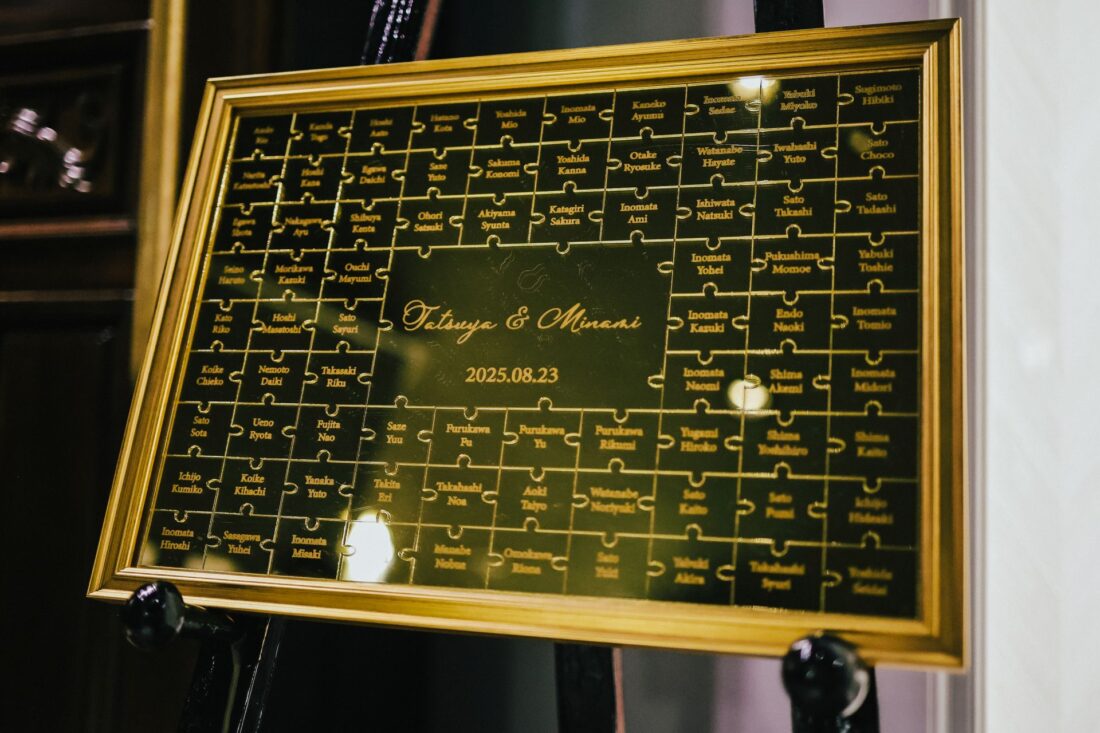 Hoshi
Hatano
Kota
Yoshida
Mio
Inomata
Mio
Kaneko
Ayumu
Inomata
Sadae
Yabuki
Miyoko
Sugimoto
Hibiki
Narita
Hoshi
Kana
Egawa
Daichi
Saze
Yuto
Sakuma
Konomi
Yoshida
Kanna
Otake
Ryosuke
Watanabe
Hayate
Iwabashi
Yuto
Sato
Choco
Egawa
Shota
Nakagawa
Ayu
Shibuya
Kenta
Ohori
Satsuki
Akiyama
Syunta
Katagiri
Sakura
Inomata
Ami
Ishiwata
Natsuki
Sato
Takashi
Sato
Tadashi
Seino
Haruto
Morikawa
Kazuki
Ouchi
Mayumi
Inomata
Yohei
Fukushima
Momoe
Yabuki
Toshie
Kato
Riko
Hoshi
Masatoshi
Sato
Sayuri
Tatsuya & Minami
Inomata
Kazuki
Endo
Naoki
Inomata
Tomio
Koike
Chieko
Nemoto
Daiki
Takasaki
Riku
2025.08.23
Inomata
Naomi
Shima
Akemi
Inomata
Midori
Sato
Sota
Ueno
Ryota
Fujita
Nao
Saze
Yuu
Furukawa
Fu
Furukawa
Yu
Furukawa
Rikumi
Yugami
Hiroko
Shima
Yoshihiro
Shima
Kaito
Ichijo
Kumiko
Koike
Kihachi
Yanaka
Yuto
Takita
Eri
Takahashi
Noa
Aoki
Taiyo
Watanabe
Noriyuki
Sato
Kaito
Sato
Fumi
Ichijo
Hideaki
Inomata
Hiroshi
Sasagawa
Yuhei
Inomata
Misaki
Manabe
Nobue
Omokawa
Riona
Sato
Yuki
Yabuki
Akira
Takahashi
Syuri
Yoshida